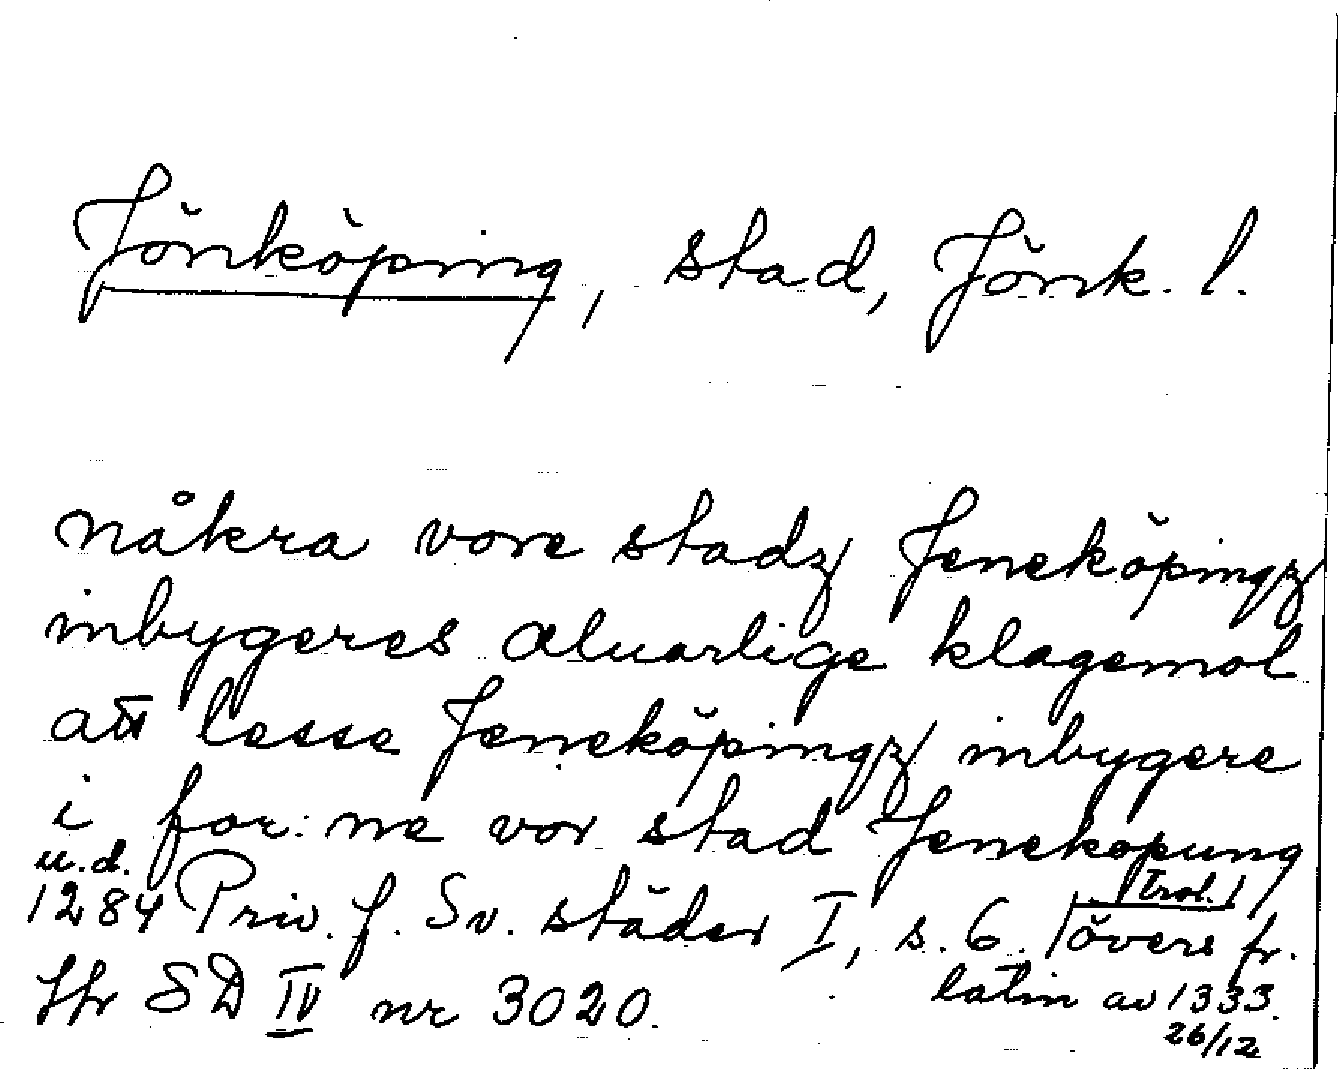 Jönköping, stad, Jönk. l.
nåkra vore stadz Jeneköpingz
inbygeres aluarlige klagemol
att lesse Jeneköpingz inbygere
i for: ne vor stad Jenekopung
u.d.
1284 Priv. f. Sv. städer I, s. 6. | övers fr.
| trol. |
Jfr SD IV nr 3020.
latin av 1333.
26/12